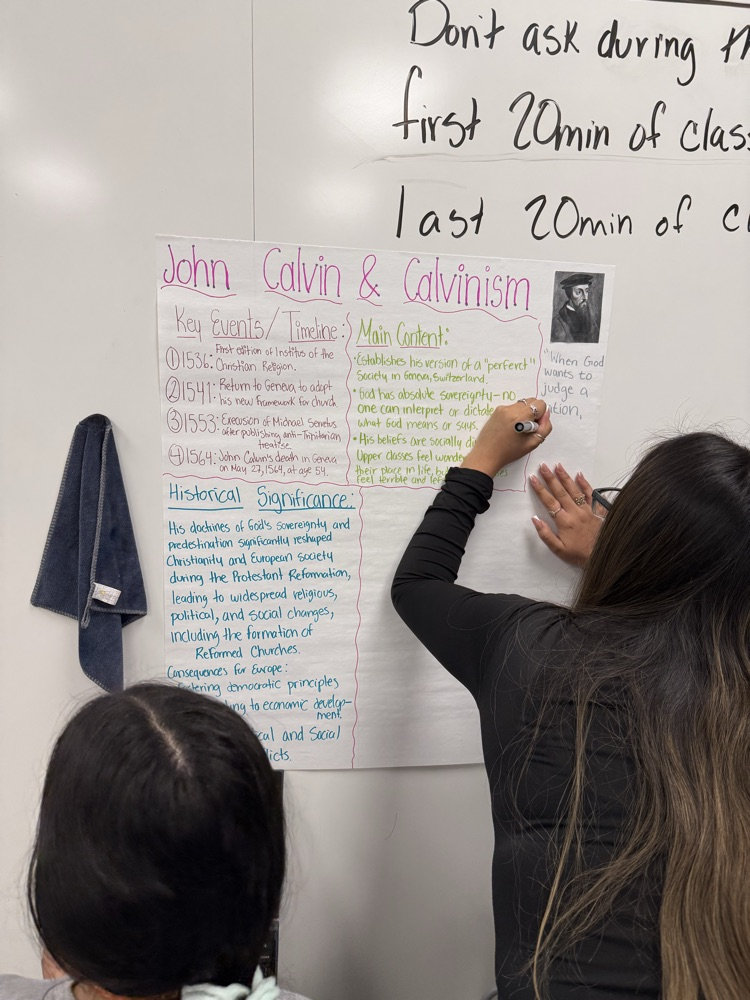 Don't ask during
first 20min of
last 20min of
John Calvin & Calvinism
Key Events/Timeline:
① 1536: First edition of Institus of the
Christian Religion.
② 1541: Return to Geneva to adopt
his new framework for church
③ 1553: Execusion of Michael
after publishing anti-Trinitarian
treatise.
④ 1564: John Calvin's death in Geneva
on May 27, 1564, at age 54.
Main Content:
• Establishes his version of a "perfevct"
Society in Geneva, Switzerland.
• God has absolute sovereignty - no
one can interpret or
what God means or says.
• His beliefs are socially
Upper classes feel
their place in life,
feel terrible and
"When God
wants to
judge a
Historical Significance:
His doctines of God's sovereignty and
predestination significantly reshaped
Christianity and European society
during the Protestant Reformation,
leading to widespread religious,
political, and social changes,
including the formation of
Reformed Churches.
Consequences for Europe:
democratic principles
to economic develop-
ment.
and Social